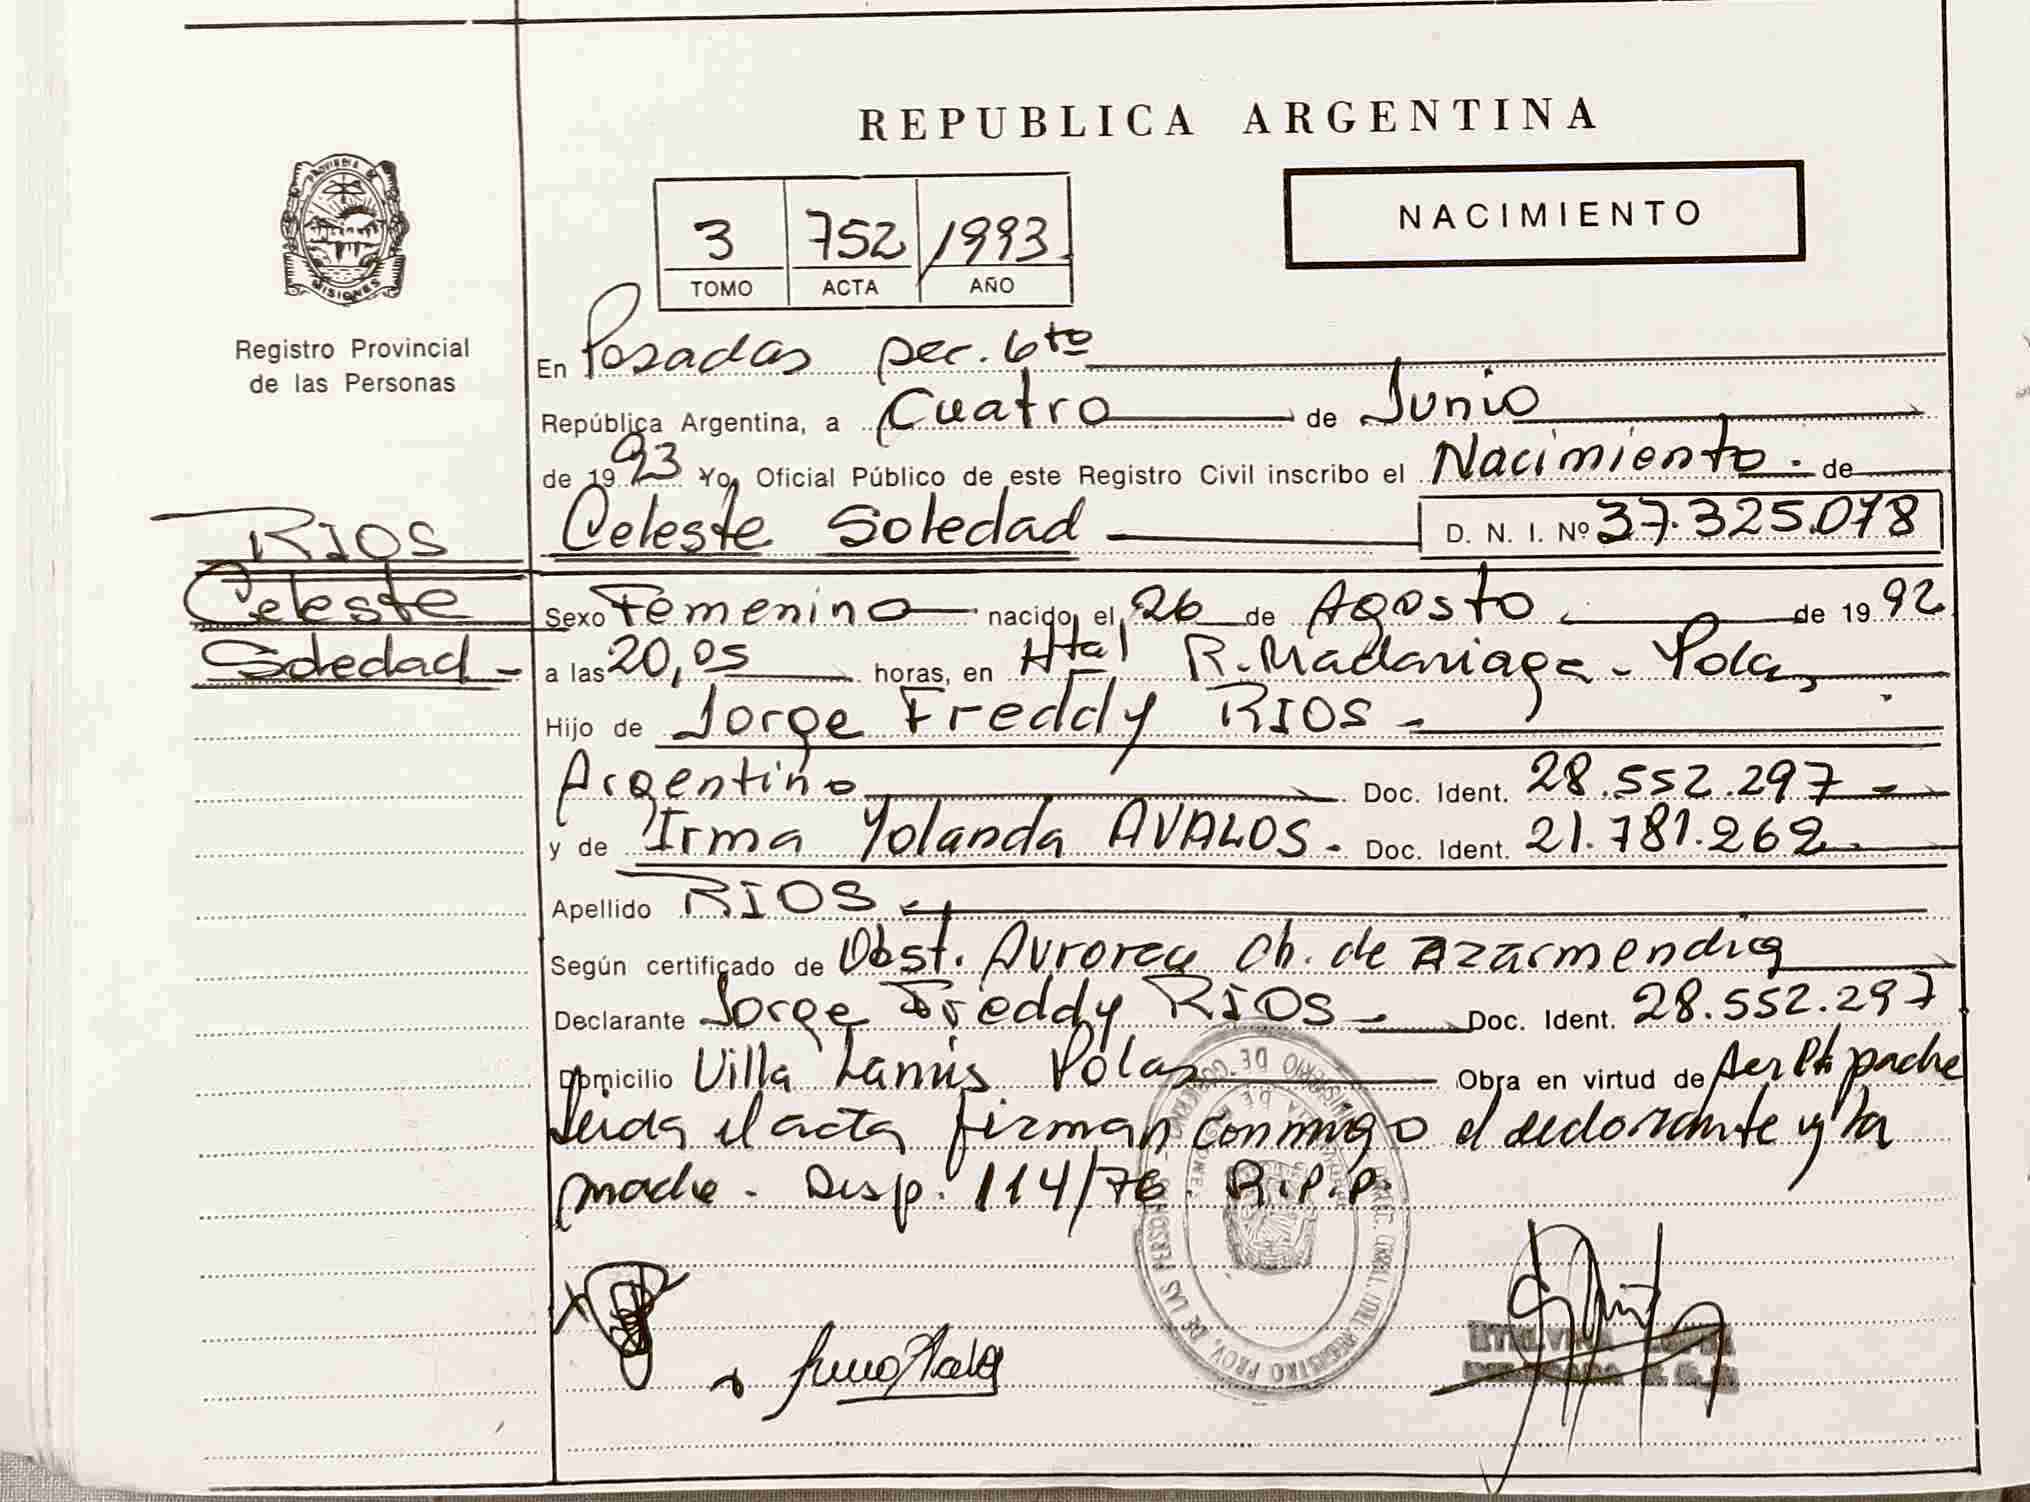 REPUBLICA ARGENTINA
NACIMIENTO
3 752 1993
TOMO ACTA AÑO
PROVINCIA DE
MISIONES
Registro Provincial
de las Personas
En Posadas sec. 6to
República Argentina, a Cuatro de Junio
de 1993 Yo, Oficial Público de este Registro Civil inscribo el Nacimiento. de
Celeste Soledad D. N. I. Nº 37.325.078
RIOS
Celeste
Soledad -
Sexo Femenino nacido el 26 de Agosto de 1992
a las 20,05 horas, en Htal R. Madariaga - Pdas
Hijo de Jorge Freddy RIOS -
Argentino Doc. Ident. 28.552.297 -
y de Irma Yolanda AVALOS. Doc. Ident. 21.781.262
Apellido RIOS
Según certificado de Obst. Aurorea Ch. de Azarmendia
Declarante Jorge Freddy RIOS - Doc. Ident. 28.552.297
Domicilio Villa Lanús Pdas Obra en virtud de ser el padre
Leida el acta firman conmigo el declarante y la
madre. Disp. 114/76 R.P.P.
REGISTRO PROV. DE LAS PERSONAS